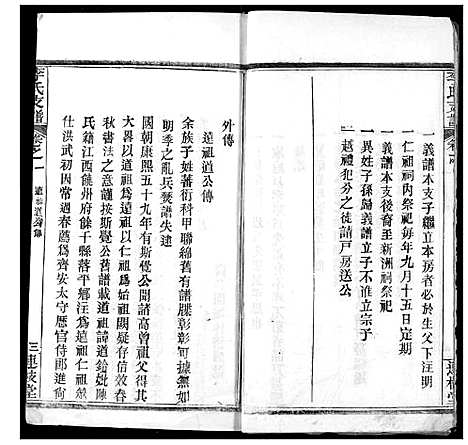 李氏支譜
一義譜本支子繼立本房者必於生父下注明
一仁祖祠內祭祀每年九月十五日定期
一義譜本支後裔至新洲祠祭祀
一異姓子孫歸義譜立子不准立宗子
一越禮犯分之徒請戶房送公
外傳
遠祖道公傳
余族子姓蕃衍科甲聯綿舊有譜牒彰彰可據無如
明季之亂兵燹譜失逮
國朝康熙五十九年有斯覺公開諸高曾祖父得其
大畧以道祖為遠祖以仁祖為始祖闕疑存信效春
秋書法之意謹按斯覺公舊譜載道祖諱道鉛妣陳
氏籍江西饒州府餘千縣落平鄉注為遠祖仁祖謹
仕洪武初因常遇春薦為齊安太守歷官侍郎進尚
李氏支譜
卷之一
遠祖道公傳
三
連枝堂